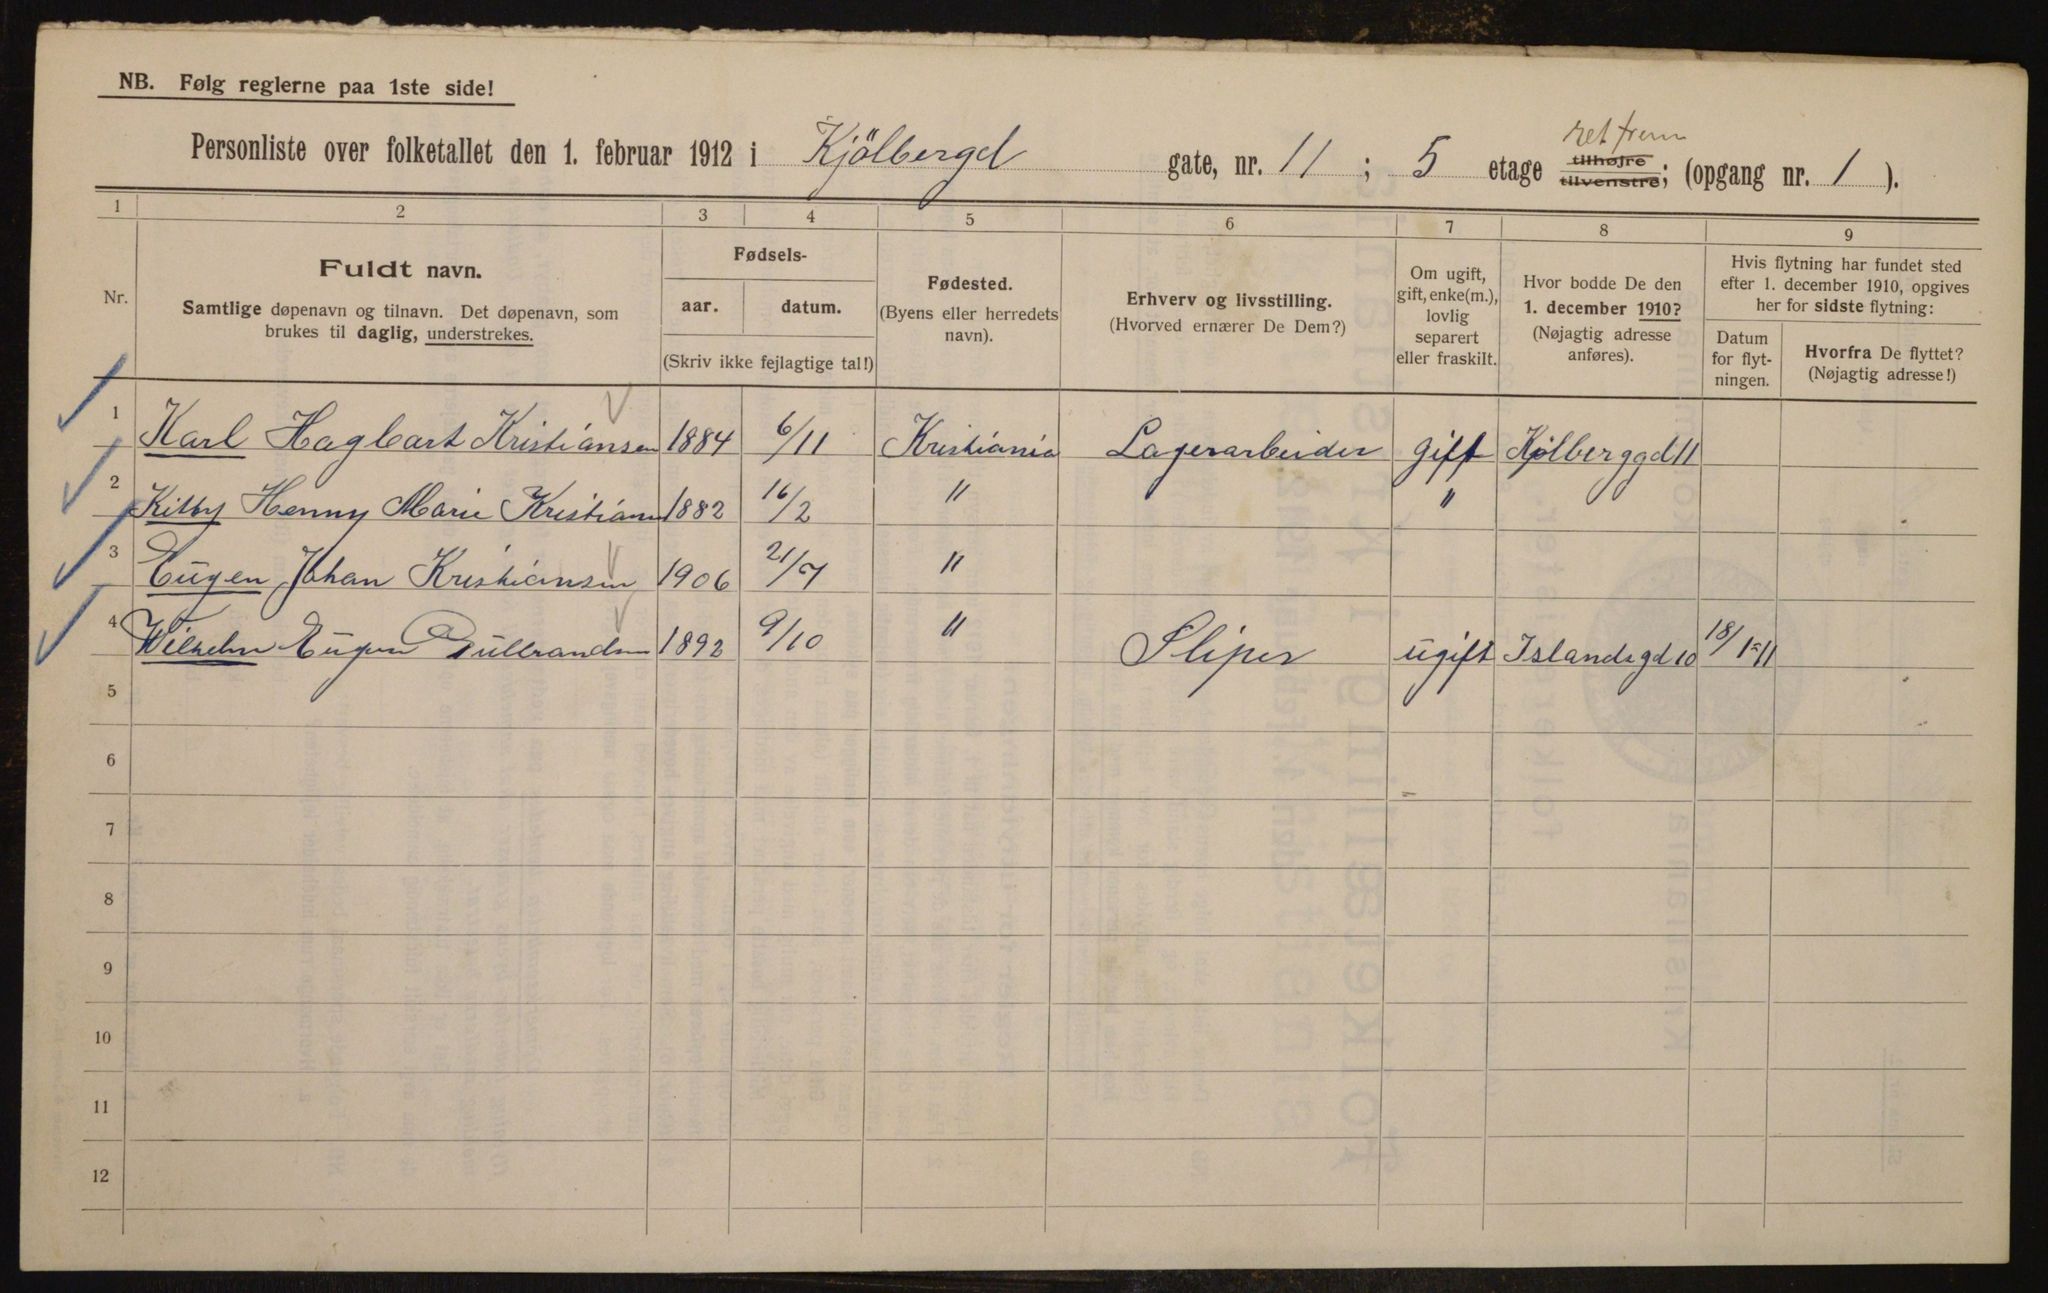 NB. Følg reglerne paa 1ste side!
ret frem
Personliste over folketallet den 1. februar 1912 i Kjölbergd gate, nr. 11 ; 5 etage tilhøjre tilvenstre; (opgang nr. 1 ).
1 2 3 4 5 6 7 8 9
Nr.
Fuldt navn.
Samtlige døpenavn og tilnavn. Det døpenavn, som
brukes til daglig, understrekes.
Fødsels-
aar. datum.
(Skriv ikke fejlagtige tal!)
Fødested.
(Byens eller herredets
navn).
Erhverv og livsstilling.
(Hvorved ernærer De Dem?)
Om ugift,
gift, enke(m.),
lovlig
separert
eller fraskilt.
Hvor bodde De den
1. december 1910?
(Nøjagtig adresse
anføres).
Hvis flytning har fundet sted
efter 1. december 1910, opgives
her for sidste flytning:
Datum
for flyt-
ningen.
Hvorfra De flyttet?
(Nøjagtig adresse!)
1 Karl Hagbart Kristiansen 1884 6/11 Kristiania Lagerarbeider gift Kjölberggd 11
2 Kitty Henny Marie Kristiansen 1882 16/2 " "
3 Eugen Johan Kristiansen 1906 21/7 "
4 Wilhelm Eugen Gullrandsen 1892 9/10 " Sliper ugift Islandsgd 10 18/1-11
5
6
7
8
9
10
11
12